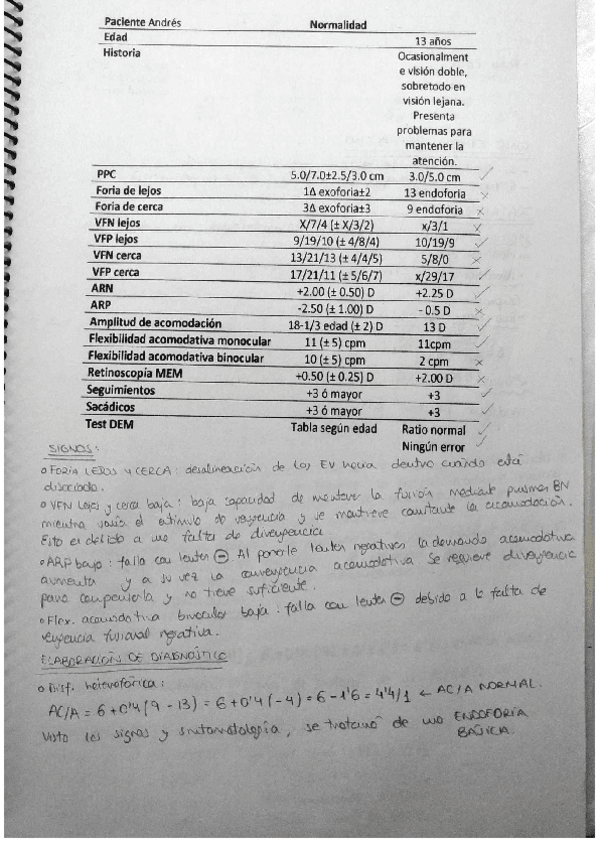 Paciente Andrés Normalidad
Edad 13 años
Historia Ocasionalment
e visión doble,
sobretodo en
visión lejana.
Presenta
problemas para
mantener la
atención.
PPC 5.0/7.0±2.5/3.0 cm 3.0/5.0 cm ✓
Foria de lejos 1Δ exoforia±2 13 endoforia ×
Foria de cerca 3Δ exoforia±3 9 endoforia ×
VFN lejos X/7/4 (± X/3/2) x/3/1 ×
VFP lejos 9/19/10 (± 4/8/4) 10/19/9 ✓
VFN cerca 13/21/13 (± 4/4/5) 5/8/0 ×
VFP cerca 17/21/11 (± 5/6/7) x/29/17 ✓
ARN +2.00 (± 0.50) D +2.25 D ✓
ARP -2.50 (± 1.00) D - 0.5 D ×
Amplitud de acomodación 18-1/3 edad (± 2) D 13 D ✓
Flexibilidad acomodativa monocular 11 (± 5) cpm 11cpm ✓
Flexibilidad acomodativa binocular 10 (± 5) cpm 2 cpm ×
Retinoscopía MEM +0.50 (± 0.25) D +2.00 D ×
Seguimientos +3 ó mayor +3 ✓
Sacádicos +3 ó mayor +3 ✓
Test DEM Tabla según edad Ratio normal ✓
Ningún error ✓
SIGNOS:
o FORIA LEJOS Y CERCA: desalineación de los EV hacia dentro cuando está
disociado.
o VFN lejos y cerca baja: baja capacidad de mantener la fusión mediante prismas BN
mientras varía el estímulo de vergencia y se mantiene constante la acomodación.
Esto es debido a una falta de divergencia
o ARP bajo: falla con lentes ⊖. Al ponerle lentes negativas la demanda acomodativa
aumenta y a su vez la convergencia acomodativa. Se requiere divergencia
para compensarla y no tiene suficiente.
o Flex. acomodativa binocular baja: falla con lentes ⊖ debido a la falta de
vergencia fusional negativa.
ELABORACIÓN DE DIAGNÓSTICO
o Disf. heterofórica:
AC/A = 6 + 0'4 (9 - 13) = 6 + 0'4 (-4) = 6 - 1'6 = 4'4/1 ← AC/A NORMAL.
Visto los signos y sintomatología, se trataría de una ENDOFORIA
BÁSICA.